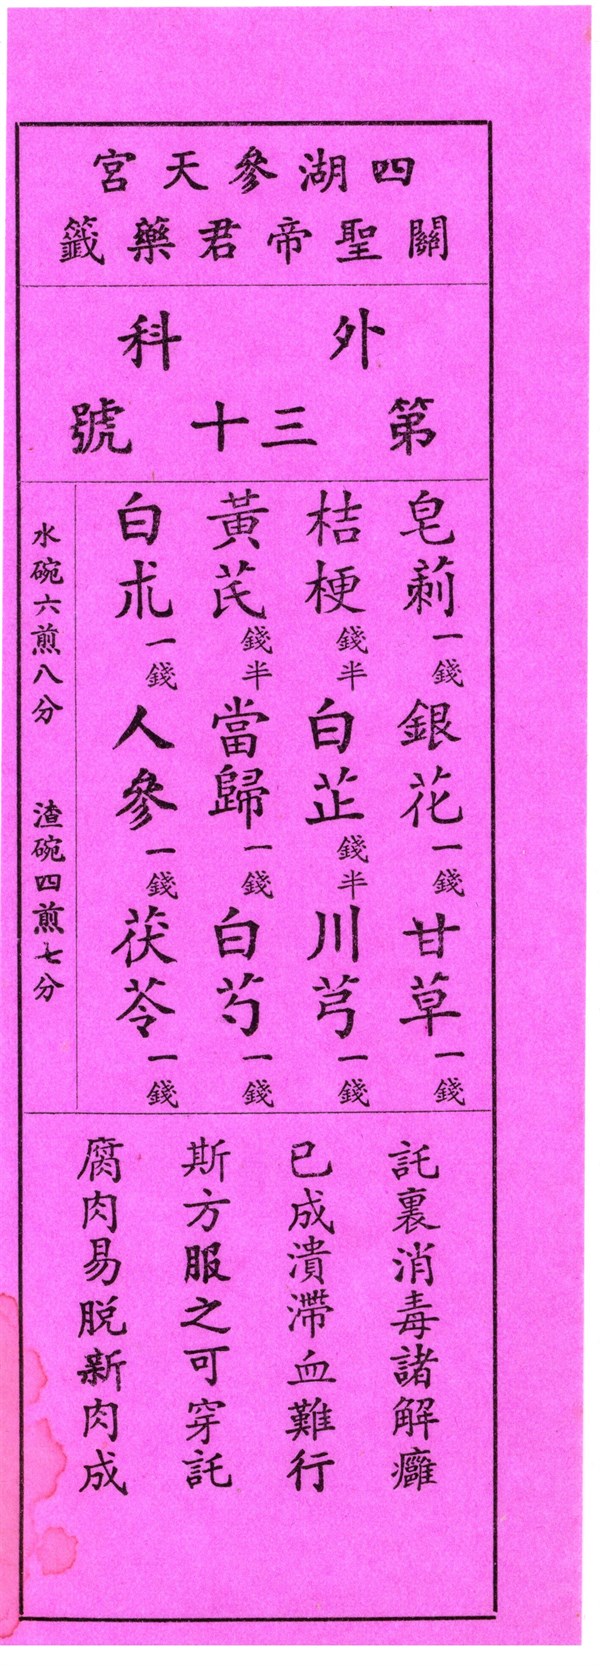 四湖參天宮
關聖帝君藥籤
外科
第三十號
皂莿一錢 銀花一錢 甘草一錢
桔梗錢半 白芷錢半 川芎一錢
黃芪錢半 當歸一錢 白芍一錢
白朮一錢 人參一錢 茯苓一錢
水碗六煎八分 渣碗四煎七分
託裏消毒諸解癰
已成潰滯血難行
斯方服之可穿託
腐肉易脫新肉成